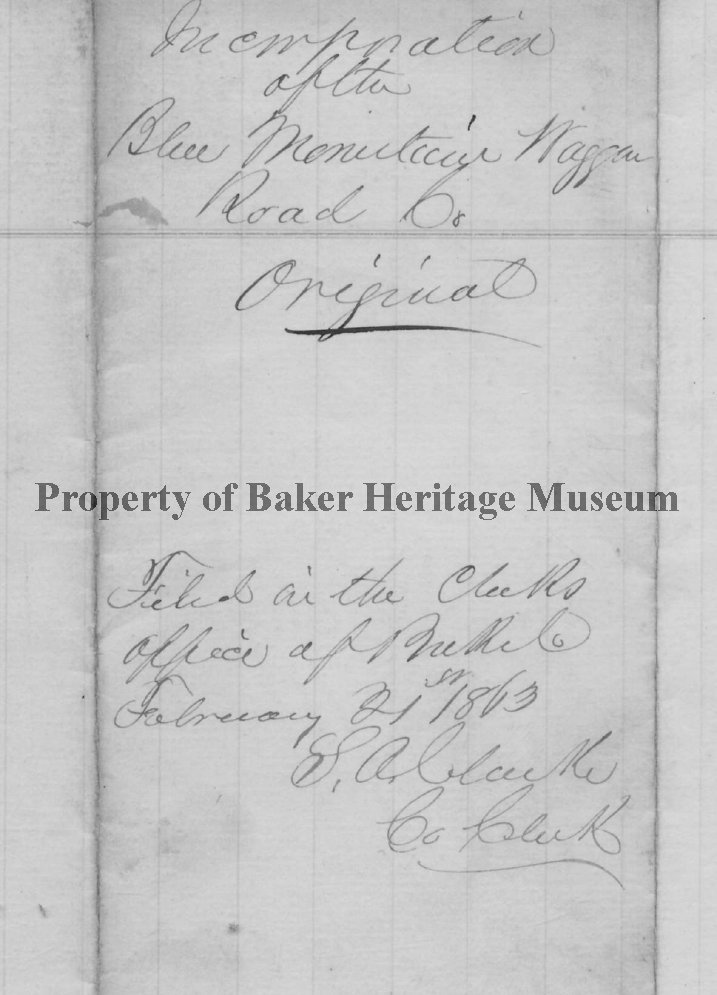 Incorporation
of the
Blue Mountain Waggon
Road Co
Original
Property of Baker Heritage Museum
Filed in the Clerks
office of Baker Co
February 21st 1863
S. A. Clarke
Co Clerk